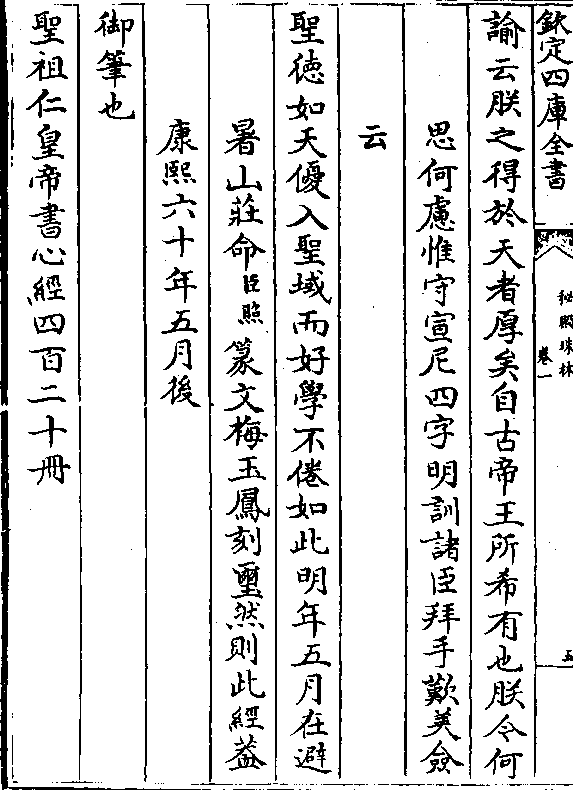 欽定四庫全書
秘殿珠林
卷一
五
諭云朕之得於天者厚矣自古帝王所希有也朕令何
思何慮惟守宣尼四字明訓諸臣拜手歎美僉
云
聖徳如天優入聖域而好學不倦如此明年五月在避
暑山莊命臣照篆文梅玉鳳刻璽然則此經葢
康熙六十年五月後
御筆也
聖祖仁皇帝書心經四百二十冊